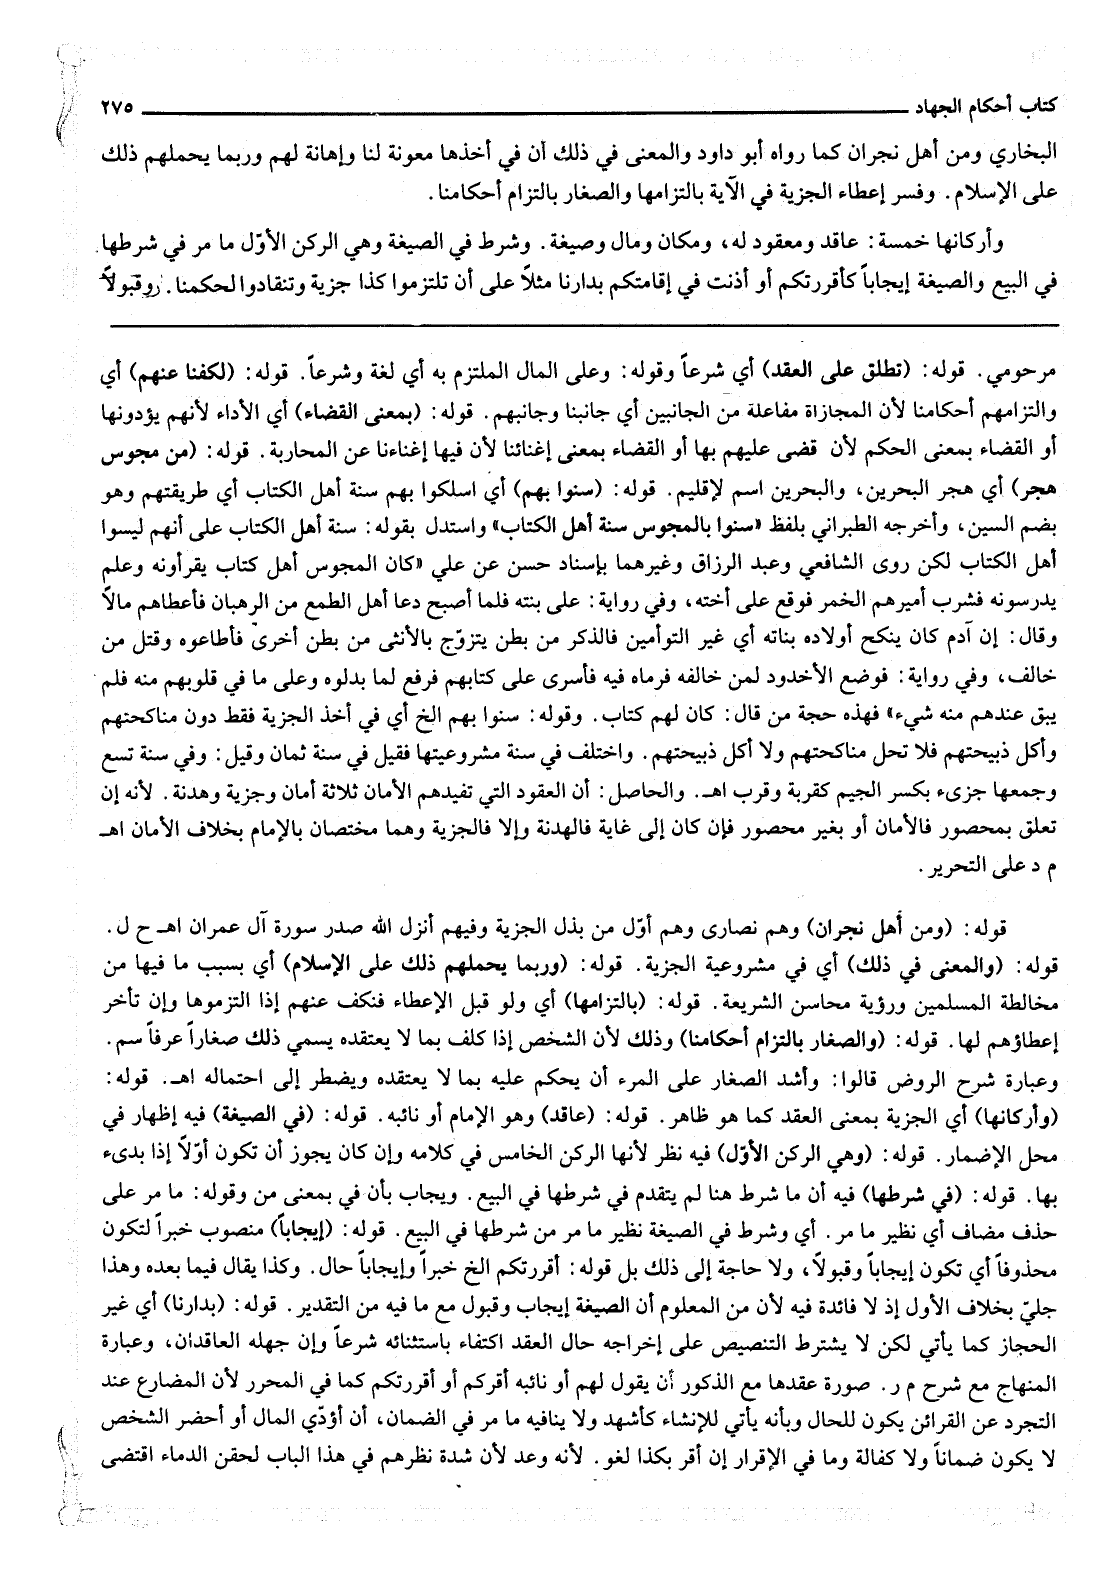 كتاب أحكام الجهاد ٢٧٥
البخاري ومن أهل نجران كما رواه أبو داود والمعنى في ذلك أن في أخذها معونة لنا وإهانة لهم وربما يحملهم ذلك
على الإسلام. وفسر إعطاء الجزية في الآية بالتزامها والصغار بالتزام أحكامنا.
وأركانها خمسة: عاقد ومعقود له، ومكان ومال وصيغة. وشرط في الصيغة وهي الركن الأوّل ما مر في شرطها
في البيع والصيغة إيجاباً كأقررتكم أو أذنت في إقامتكم بدارنا مثلاً على أن تلتزموا كذا جزية وتنقادوا لحكمنا. (وقبولاً
مرحومي. قوله: (تطلق على العقد) أي شرعاً وقوله: وعلى المال الملتزم به أي لغة وشرعاً. قوله: (لكفنا عنهم) أي
والتزامهم أحكامنا لأن المجازاة مفاعلة من الجانبين أي جانبنا وجانبهم. قوله: (بمعنى القضاء) أي الأداء لأنهم يؤدونها
أو القضاء بمعنى الحكم لأن قضى عليهم بها أو القضاء بمعنى إغنائنا لأن فيها إغناءنا عن المحاربة. قوله: (من مجوس
هجر) أي هجر البحرين، والبحرين اسم لإقليم. قوله: (سنوا بهم) أي اسلكوا بهم سنة أهل الكتاب أي طريقتهم وهو
بضم السين، وأخرجه الطبراني بلفظ «سنوا بالمجوس سنة أهل الكتاب» واستدل بقوله: سنة أهل الكتاب على أنهم ليسوا
أهل الكتاب لكن روى الشافعي وعبد الرزاق وغيرهما بإسناد حسن عن علي «كان المجوس أهل كتاب يقرأونه وعلم
يدرسونه فشرب أميرهم الخمر فوقع على أخته، وفي رواية: على بنته فلما أصبح دعا أهل الطمع من الرهبان فأعطاهم مالاً
وقال: إن آدم كان ينكح أولاده بناته أي غير التوأمين فالذكر من بطن يتزوّج بالأنثى من بطن أخرى فأطاعوه وقتل من
خالف، وفي رواية: فوضع الأخدود لمن خالفه فرماه فيه فأسرى على كتابهم فرفع لما بدلوه وعلى ما في قلوبهم منه فلم
يبق عندهم منه شيء» فهذه حجة من قال: كان لهم كتاب. وقوله: سنوا بهم الخ أي في أخذ الجزية فقط دون مناكحتهم
وأكل ذبيحتهم فلا تحل مناكحتهم ولا أكل ذبيحتهم. واختلف في سنة مشروعيتها فقيل في سنة ثمان وقيل: وفي سنة تسع
وجمعها جزىء بكسر الجيم كقربة وقرب اهـ. والحاصل: أن العقود التي تفيدهم الأمان ثلاثة أمان وجزية وهدنة. لأنه إن
تعلق بمحصور فالأمان أو بغير محصور فإن كان إلى غاية فالهدنة وإلا فالجزية وهما مختصان بالإمام بخلاف الأمان اهـ
م د على التحرير.
قوله: (ومن أهل نجران) وهم نصارى وهم أوّل من بذل الجزية وفيهم أنزل الله صدر سورة آل عمران اهـ ح ل.
قوله: (والمعنى في ذلك) أي في مشروعية الجزية. قوله: (وربما يحملهم ذلك على الإسلام) أي بسبب ما فيها من
مخالطة المسلمين ورؤية محاسن الشريعة. قوله: (بالتزامها) أي ولو قبل الإعطاء فنكف عنهم إذا التزموها وإن تأخر
إعطاؤهم لها. قوله: (والصغار بالتزام أحكامنا) وذلك لأن الشخص إذا كلف بما لا يعتقده يسمي ذلك صغاراً عرفاً سم.
وعبارة شرح الروض قالوا: وأشد الصغار على المرء أن يحكم عليه بما لا يعتقده ويضطر إلى احتماله اهـ. قوله:
(وأركانها) أي الجزية بمعنى العقد كما هو ظاهر. قوله: (عاقد) وهو الإمام أو نائبه. قوله: (في الصيغة) فيه إظهار في
محل الإضمار. قوله: (وهي الركن الأوّل) فيه نظر لأنها الركن الخامس في كلامه وإن كان يجوز أن تكون أوّلاً إذا بدىء
بها. قوله: (في شرطها) فيه أن ما شرط هنا لم يتقدم في شرطها في البيع. ويجاب بأن في بمعنى من وقوله: ما مر على
حذف مضاف أي نظير ما مر. أي وشرط في الصيغة نظير ما مر من شرطها في البيع. قوله: (إيجاباً) منصوب خبراً لتكون
محذوفاً أي تكون إيجاباً وقبولاً، ولا حاجة إلى ذلك بل قوله: أقررتكم الخ خبراً وإيجاباً حال. وكذا يقال فيما بعده وهذا
جليّ بخلاف الأول إذ لا فائدة فيه لأن من المعلوم أن الصيغة إيجاب وقبول مع ما فيه من التقدير. قوله: (بدارنا) أي غير
الحجاز كما يأتي لكن لا يشترط التنصيص على إخراجه حال العقد اكتفاء باستثنائه شرعاً وإن جهله العاقدان، وعبارة
المنهاج مع شرح م ر. صورة عقدها مع الذكور أن يقول لهم أو نائبه أقركم أو أقررتكم كما في المحرر لأن المضارع عند
التجرد عن القرائن يكون للحال وبأنه يأتي للإنشاء كأشهد ولا ينافيه ما مر في الضمان، أن أؤدّي المال أو أحضر الشخص
لا يكون ضماناً ولا كفالة وما في الإقرار إن أقر بكذا لغو. لأنه وعد لأن شدة نظرهم في هذا الباب لحقن الدماء اقتضى